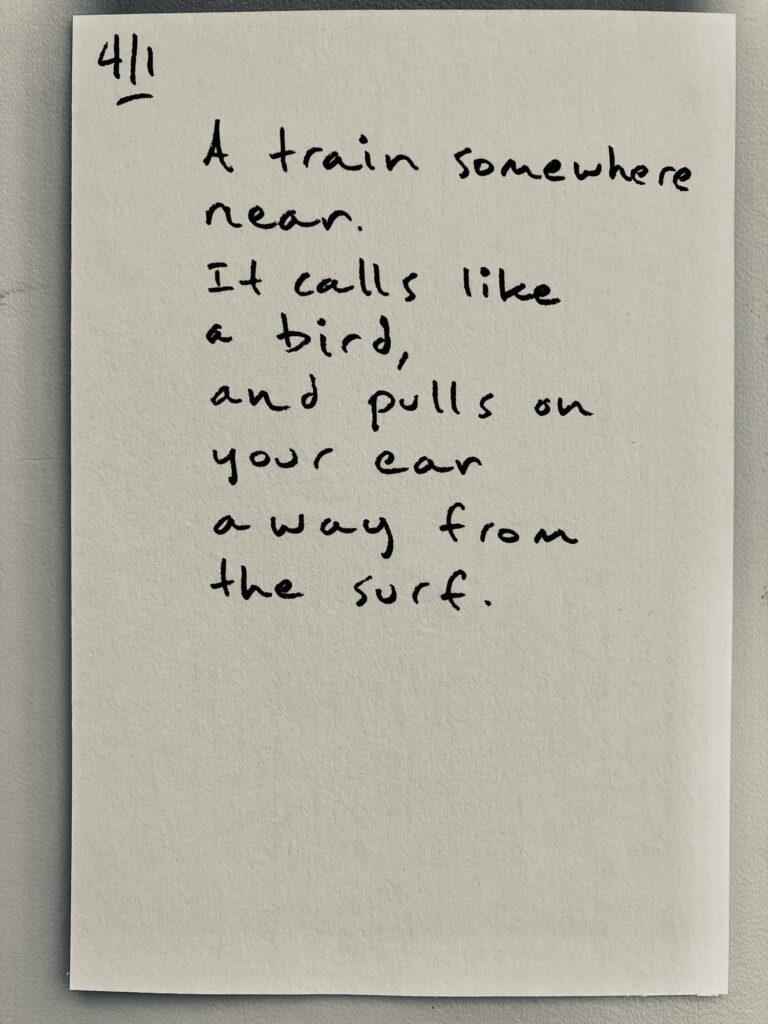 4/1
A train somewhere
near.
It calls like
a bird,
and pulls on
your ear
away from
the surf.